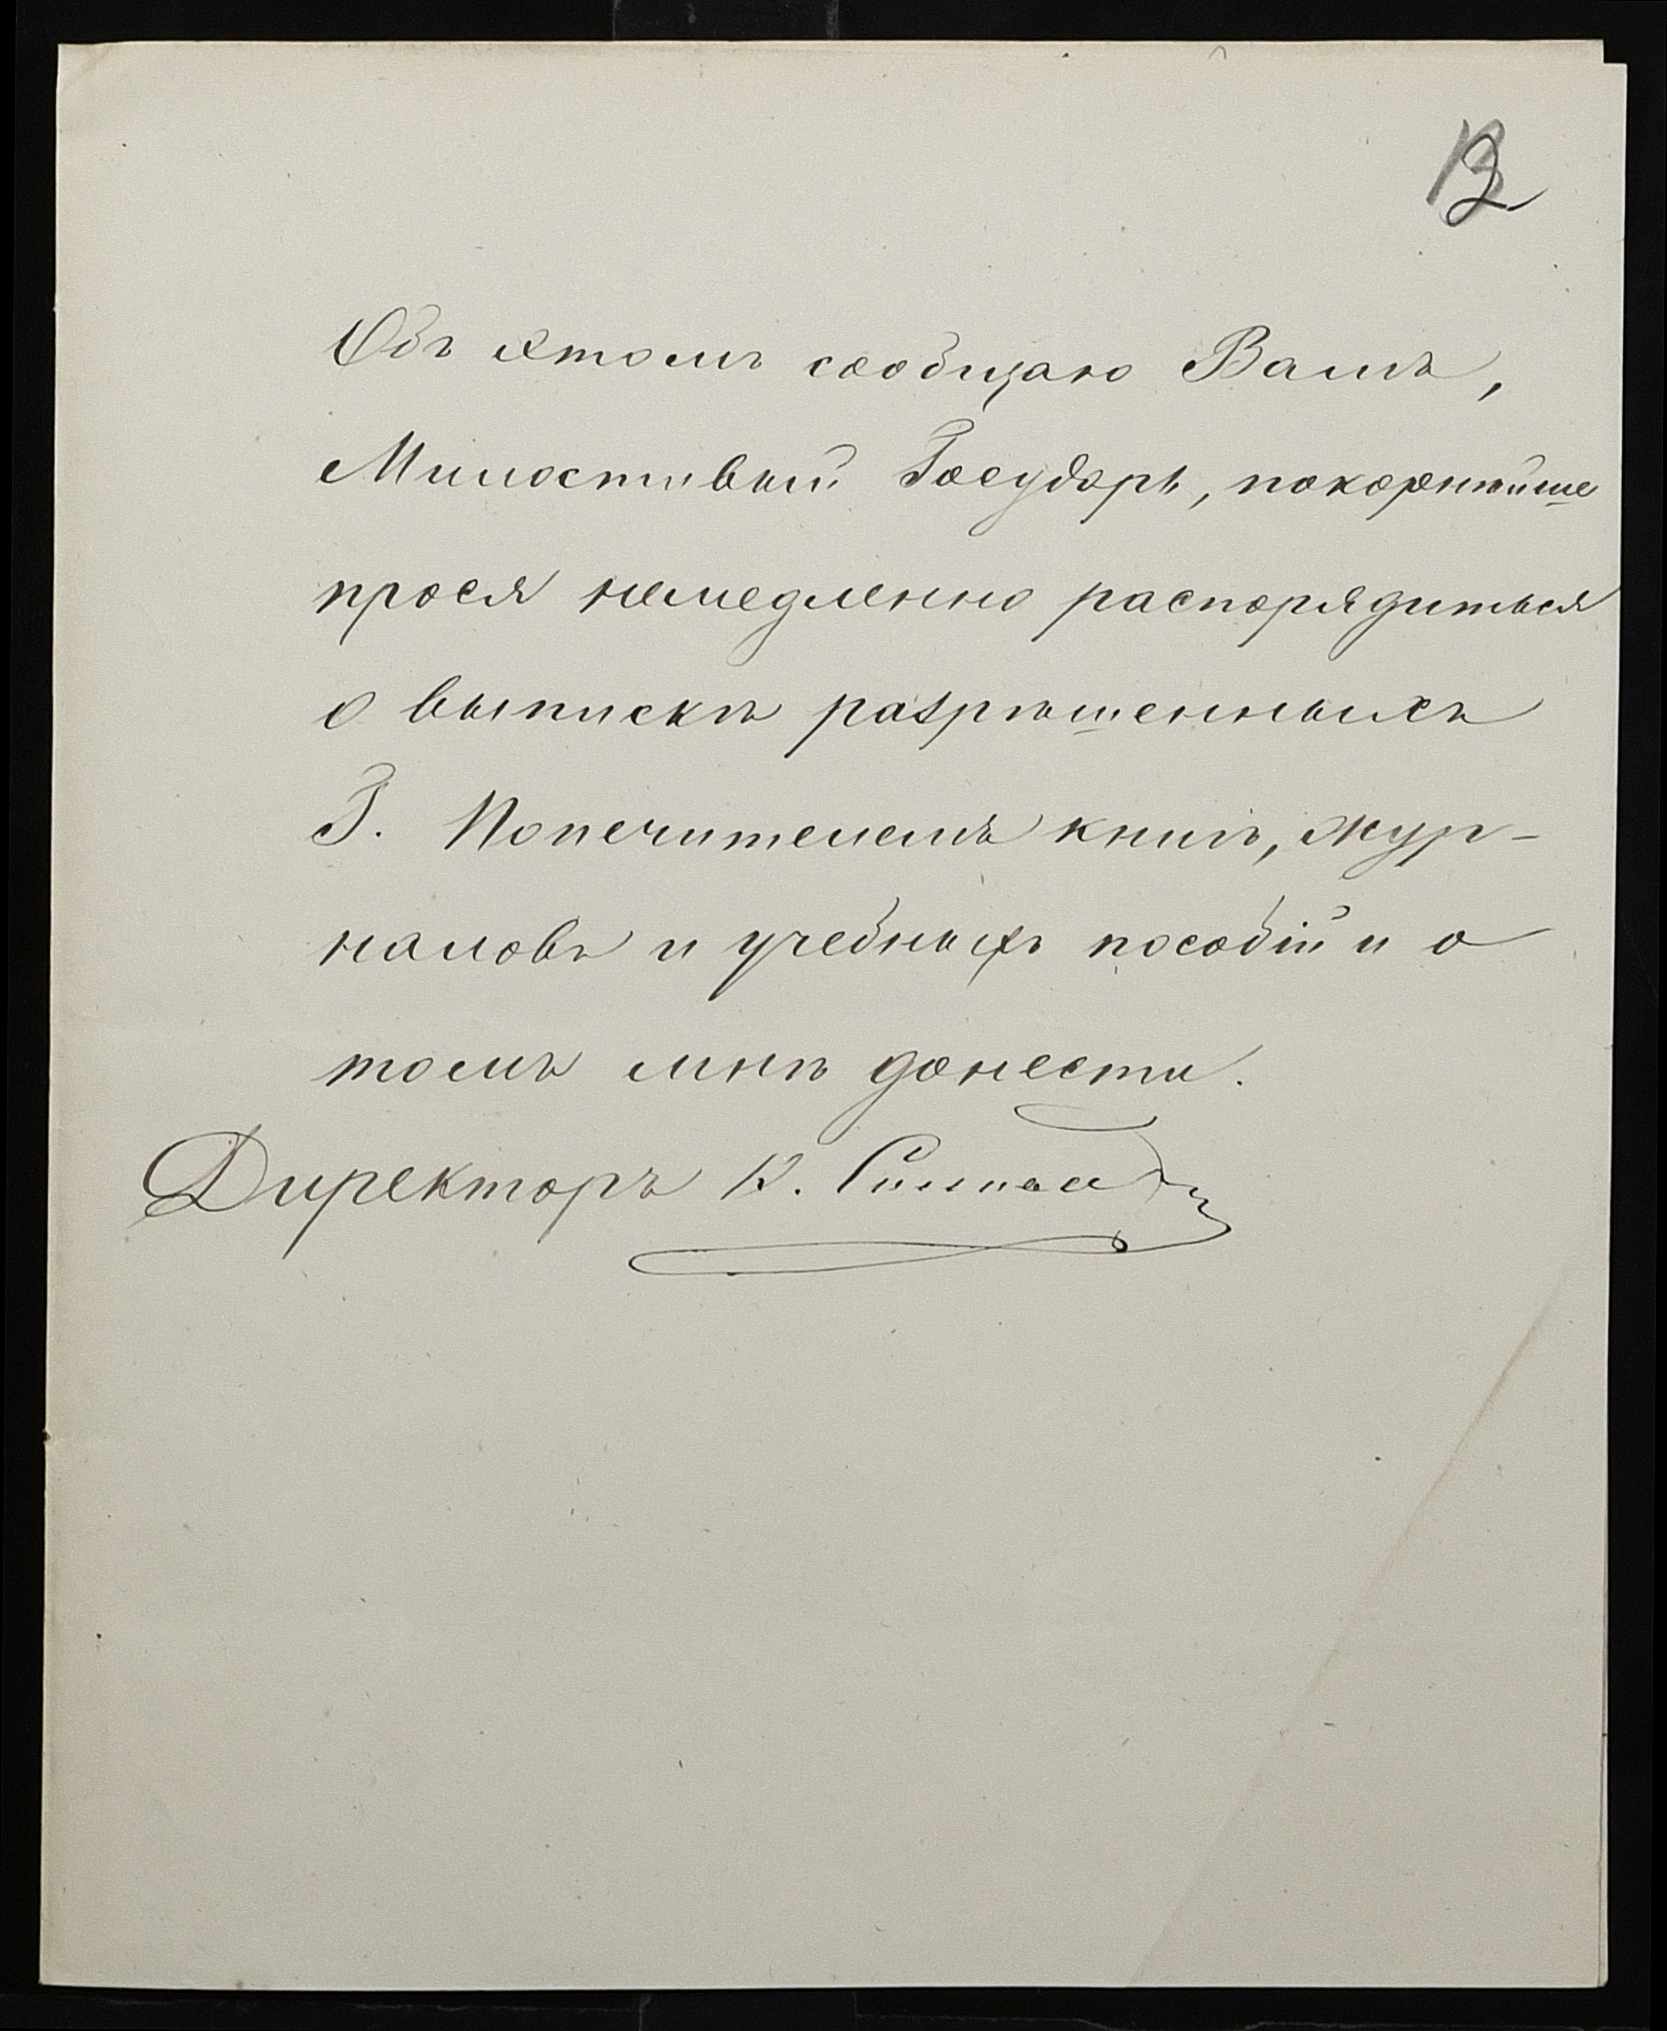 12
Объ этомъ сообщаю Вамъ,
Милостивый Государь, покорнѣйше
прося немедленно распорядиться
о выпискѣ разрѣшенныхъ
Г. Попечителемъ книгъ, жур-
наловъ и учебныхъ пособій и о
томъ мнѣ донести.
Директоръ К.